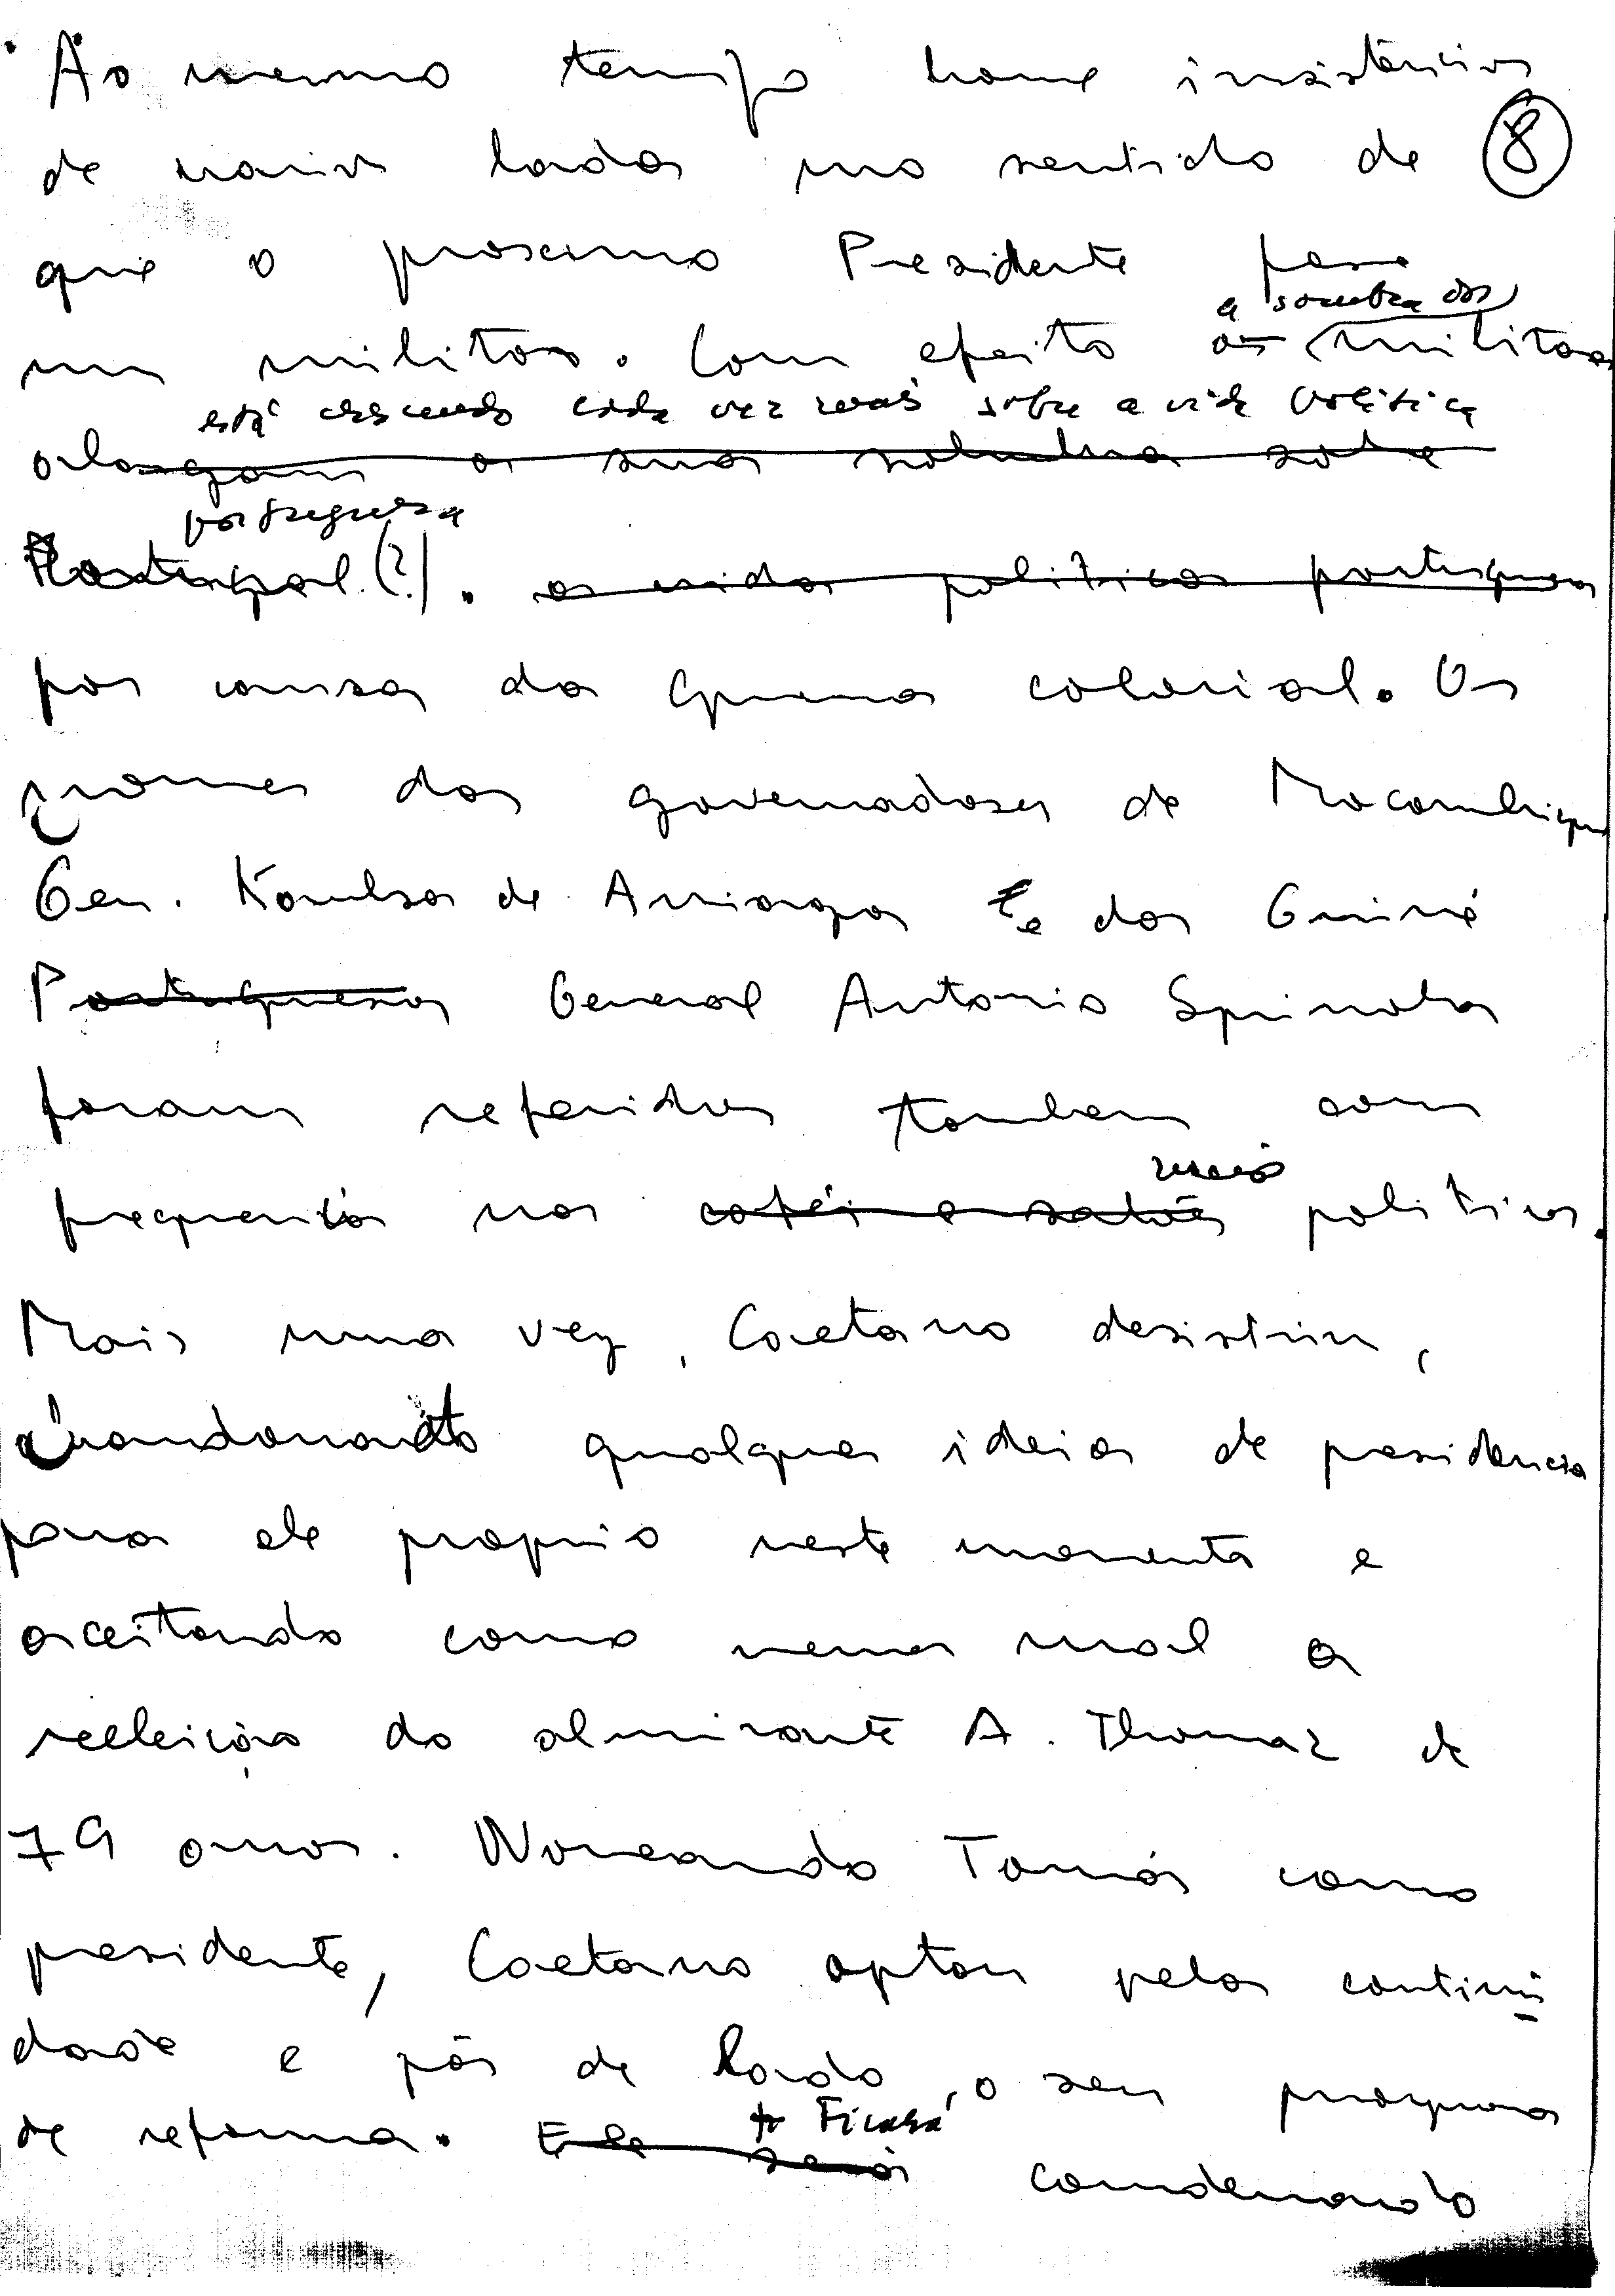 Ao mesmo tempo houve insistências
de varios lados no sentido de 8
que o proximo Presidente fosse
a sombra dos
um militar. Com efeito os militares
está crescendo cada vez mais sobre a vida politica
alargam a sua sombra sobre
portuguesa
Portugal (?). a vida politica portuguesa
por causa da guerra colonial. Os
nomes dos governadores de Mocambique
Gen. Kaulza de Arriaga e da Guiné
Portuguesa General Antonio Spinola
foram referidos tambem com
meios
frequencia nos cafés e salões politicos.
Mais uma vez, Caetano desistiu,
abandonando qualquer ideia de presidencia
para ele proprio neste momento e
aceitando como menor mal a
reeleição do almirante A. Thomaz de
79 anos. Nomeando Tomás como
presidente, Caetano optou pela continui
dade e pôs de lado, o seu programa
Ficará
de reforma. Ele será condenando